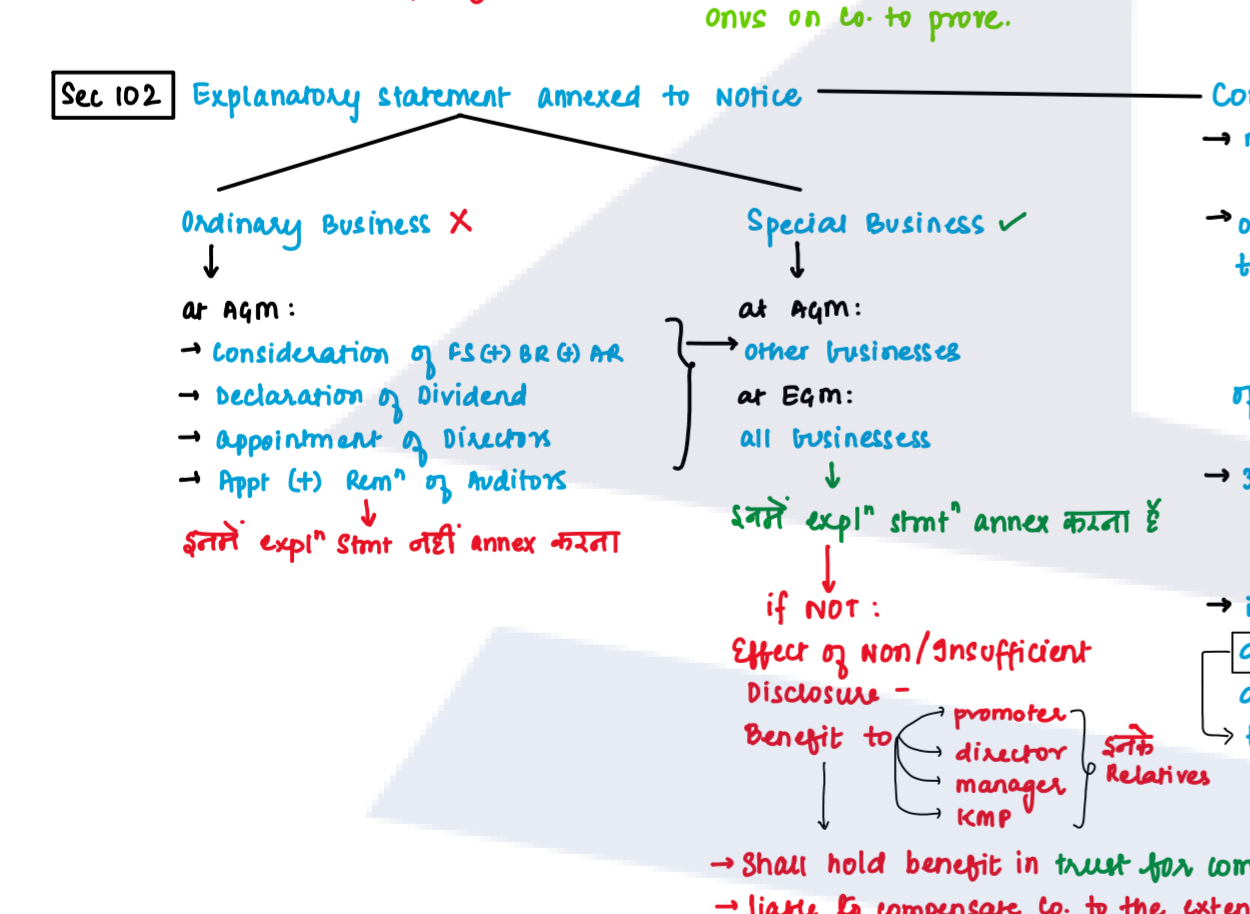 onus on Co. to prove.
Sec 102 Explanatory statement annexed to Notice
Ordinary Business ✗
at AGM:
→ Consideration of FS (+) BR (+) AR
→ Declaration of Dividend
→ appointment of Directors
→ Appt (+) Remⁿ of Auditors
इनमें explⁿ stmt नहीं annex करना
Special Business ✓
at AGM:
other businesses
at EGM:
all businessess
इनमें explⁿ stmtⁿ annex करना है
if NOT:
Effect of Non/Insufficient
Disclosure -
Benefit to
promoter
director
manager
KMP
इनके
Relatives
→ Shall hold benefit in trust for com
→ liable to compensate Co. to the exten